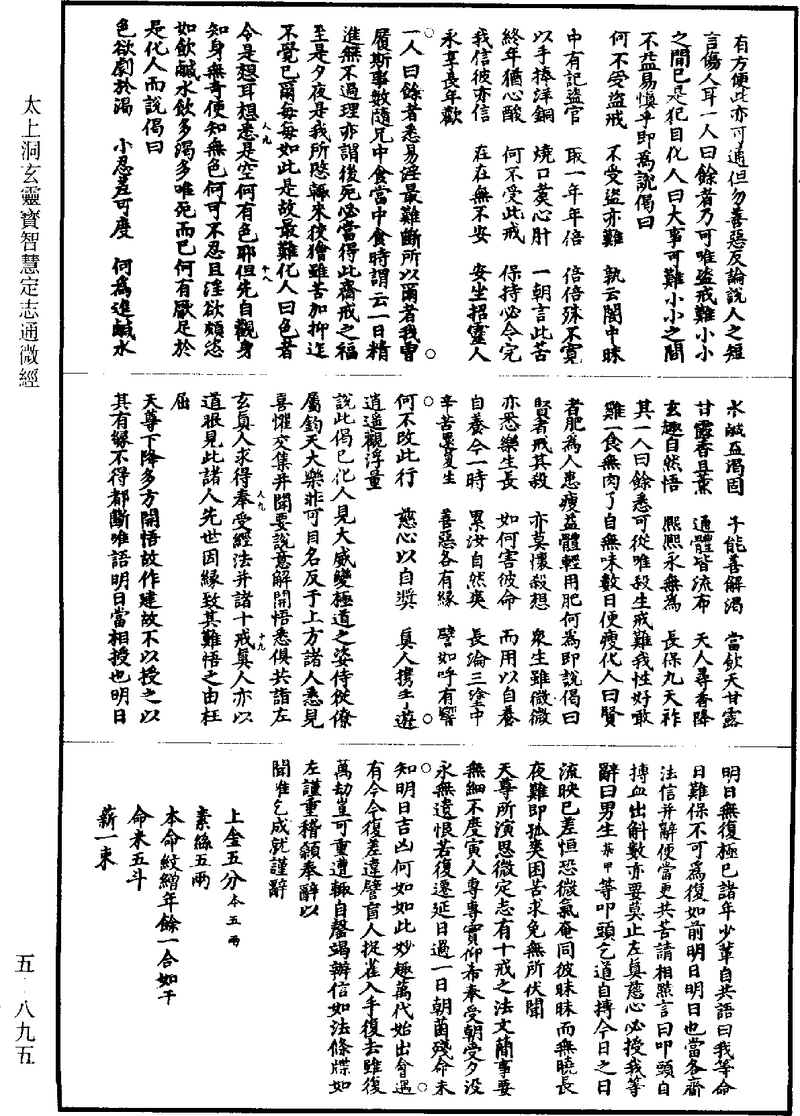 有方便此亦可通但勿善惡反論說人之短
言傷人耳一人曰餘者乃可唯盜戒難小小
之間已是犯目化人曰大事可難小小之間
不益易慎乎即為說偈曰
何不受盜戒　不受盜亦難　孰云闇中昧
中有記盜官　取一年年倍　倍倍殊不寛
以手捧洋銅　燒口爛心肝　一朝言此苦
終年猶心酸　何不受此戒　保持必令完
我信彼亦信　在在無不安　安生招靈人
永享長年歡
一人曰餘者悉易淫最難斷所以爾者我曹
屬斯事數隨兄中食當中食時謂云一日精
進無不過理亦謂後死必當得此齋戒之福
至是夕夜是我所慜輒來後獪雖苦加抑迮
不覺已爾每每如此是故最難化人曰色者
今是想耳想悉是空何有色耶但先自觀身
知身無寄便知無色何可不忍且淫欲頗恣
如飲鹹水飲多渴多唯死而已何有厭足於
是化人而說偈曰
色欲劇於渴　小忍差可度　何為進鹹水
水鹹益渴固　子能善解渴　當飲天甘露
甘露香且薰　通體皆流布　天人尋香降
玄趣自然悟　熙熙永無為　長保九天祚
其一人曰餘悉可從唯殺生戒難我性好敢
雞一食無肉了自無味數日便瘦化人曰賢
者肥為人患瘦益體輕用肥何為即說偈曰
賢者戒其殺　亦莫懷殺想　衆生雖微微
亦悉樂生長　如何害彼命　而用以自養
自養今一時　累汝自然爽　長淪三塗中
辛苦還復生　善惡各有緣　譬如呼有響
何不改此行　慈心以自獎　真人攜手遊
逍遙觀浮量
說此偈已化人見大威變極道之姿侍從僚
屬鈞天大樂非可目名反于上方諸人悉見
喜懼交集并聞要說意解開悟悉俱共詣左
玄真人求得奉受經法并諸十戒真人亦以
道眼見此諸人先世因緣致其難悟之由枉
屈
天尊下降多方開悟故作建故不以授之以
其有緣不得都斷唯語明日當相授也明日
明日無復極已諸年少輩自共語曰我等命
日難保不可為復如前明日明日也當各齋
法信并辭便當更共苦請相㷱言曰叩頭自
搏血出斛數亦要莫止左真慈心必授我等
辭曰男生某甲等叩頭乞道自搏今日之日
流映已差恒恐微氣奄同彼昧昧而無曉長
夜難即孤爽困苦求免無所伏聞
天尊所演思微定志有十戒之法文蕳事要
無細不度寅人專專實仰希奉受朝受夕没
永無遺恨若復遷延日過一日朝菌殘命未
知明日吉凶何如如此妙趣萬代始出會遇
有今今復差違譬盲人捉雀入手復去雖復
萬劫豈可重遭輒自罄竭辦信如法條牒如
左謹重稽顙奉辭以
聞唯乞成就謹辭
上金五分本五兩
素絲五兩
本命紋繒年餘一合如干
命米五斗
薪一束
太上洞玄靈寶智慧定志通微經
五-八九五